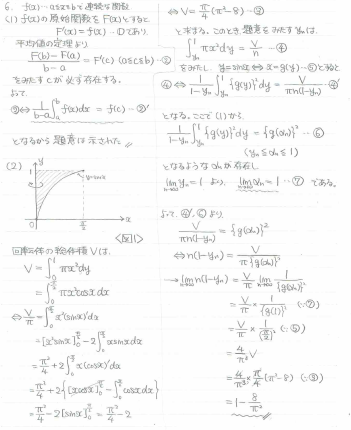 6. f(x)…a≤x≤bで連続な関数
(1) f(x)の原始関数をF(x)とすると
F'(x)=f(x)…①であり
平均値の定理より
F(b)-F(a)/b-a = F'(c) (a≤c≤b)…②
をみたすcが必ず存在する。
よって
②⇔ 1/b-a ∫_a^b f(x)dx = f(c) …②'
となるから題意は示された。
(2)
y
1
y=sinx
0
π/2
x
<図1>
回転体の体積Vは、
V=∫_0^1 πx²dy
=∫_0^{π/2} πx²cosx dx
⇔ V/π = ∫_0^{π/2} x²(sinx)'dx
=[x²sinx]_0^{π/2} -2∫_0^{π/2} xsinxdx
= π²/4 +2∫_0^{π/2} x(cosx)'dx
= π²/4 +2{[xcosx]_0^{π/2} -∫_0^{π/2} cosxdx}
= π²/4 -2[sinx]_0^{π/2} = π²/4 -2
⇔ V= π/4 (π²-8) …③
と求まる。このとき、題意をみたすy_nは、
∫_{y_n}^1 πx²dy = V/n …④
をみたし y=sinx⇔x=g(y)…⑤とすると
④⇔ 1/1-y_n ∫_{y_n}^1 {g(y)}²dy = V/πn(1-y_n) …④'
となる。ここで(1)から
1/1-y_n ∫_{y_n}^1 {g(y)}²dy = {g(α_n)}² …⑥
(y_n≤α_n≤1)
となるようなα_nが存在し
lim_{n→∞} y_n=1 より、lim_{n→∞} α_n=1 …⑦ である。
よって、④',⑥より
V/πn(1-y_n) = {g(α_n)}²
⇔n(1-y_n)= V/π{g(α_n)}²
→ lim_{n→∞} n(1-y_n)= V/π lim_{n→∞} 1/{g(α_n)}²
= V/π × 1/{g(1)}² (∵⑦)
= V/π × 1/(π/2)² (∵⑤)
= 4/π³ V
= 4/π³ × π/4 (π²-8) (∵③)
= 1- 8/π²